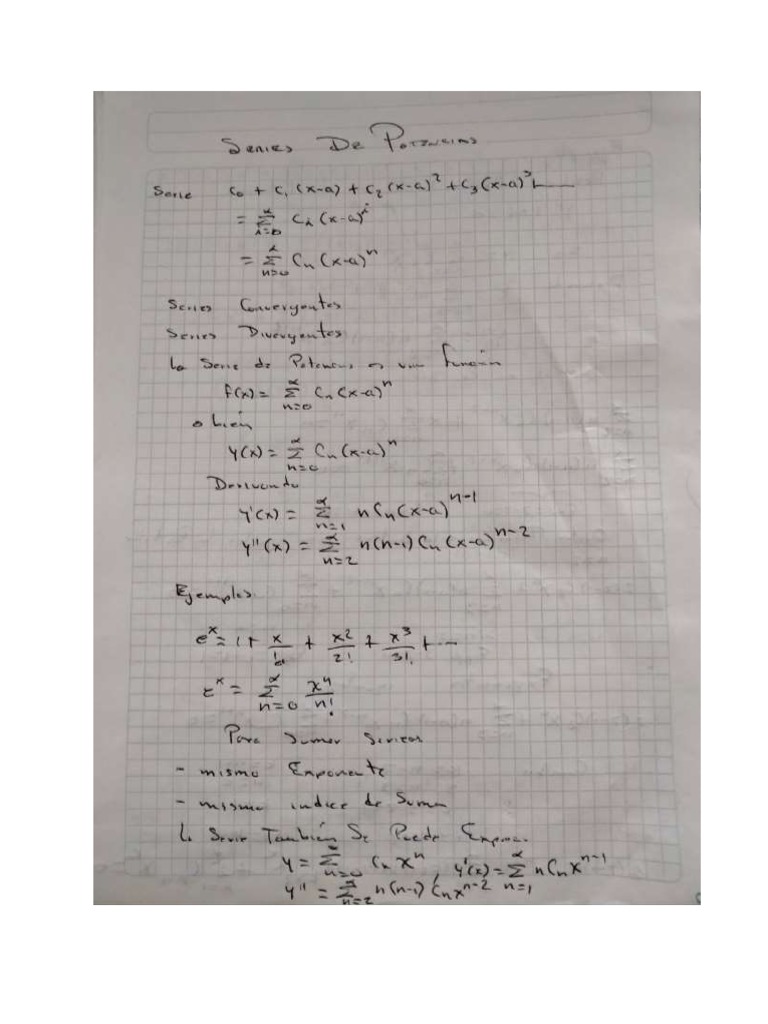 Series De Potencias
Serie C₀ + C₁ (x-a) + C₂ (x-a)² + C₃ (x-a)³ + ——
= ∑_{i=0}^{∝} Cᵢ (x-a)ⁱ
= ∑_{n=0}^{∝} Cₙ (x-a)ⁿ
Series Convergentes
Series Divergentes
La Serie de Potencias es una función
f(x) = ∑_{n=0}^{∝} Cₙ (x-a)ⁿ
o bien
y(x) = ∑_{n=0}^{∝} Cₙ (x-a)ⁿ
Derivando
y'(x) = ∑_{n=1}^{∝} n Cₙ (x-a)ⁿ⁻¹
y''(x) = ∑_{n=2}^{∝} n(n-1) Cₙ (x-a)ⁿ⁻²
Ejemplos
eˣ = 1 + x/1! + x²/2! + x³/3! + ---
eˣ = ∑_{n=0}^{∝} xⁿ/n!
Para Sumar Series
- mismo Exponente
- mismo indice de Suma
La Serie También Se Puede
y = ∑_{n=0}^{∝} Cₙ xⁿ , y'(x) = ∑_{n=1}^{∝} n Cₙ xⁿ⁻¹
y'' = ∑_{n=2}^{∝} n(n-1) Cₙ xⁿ⁻²